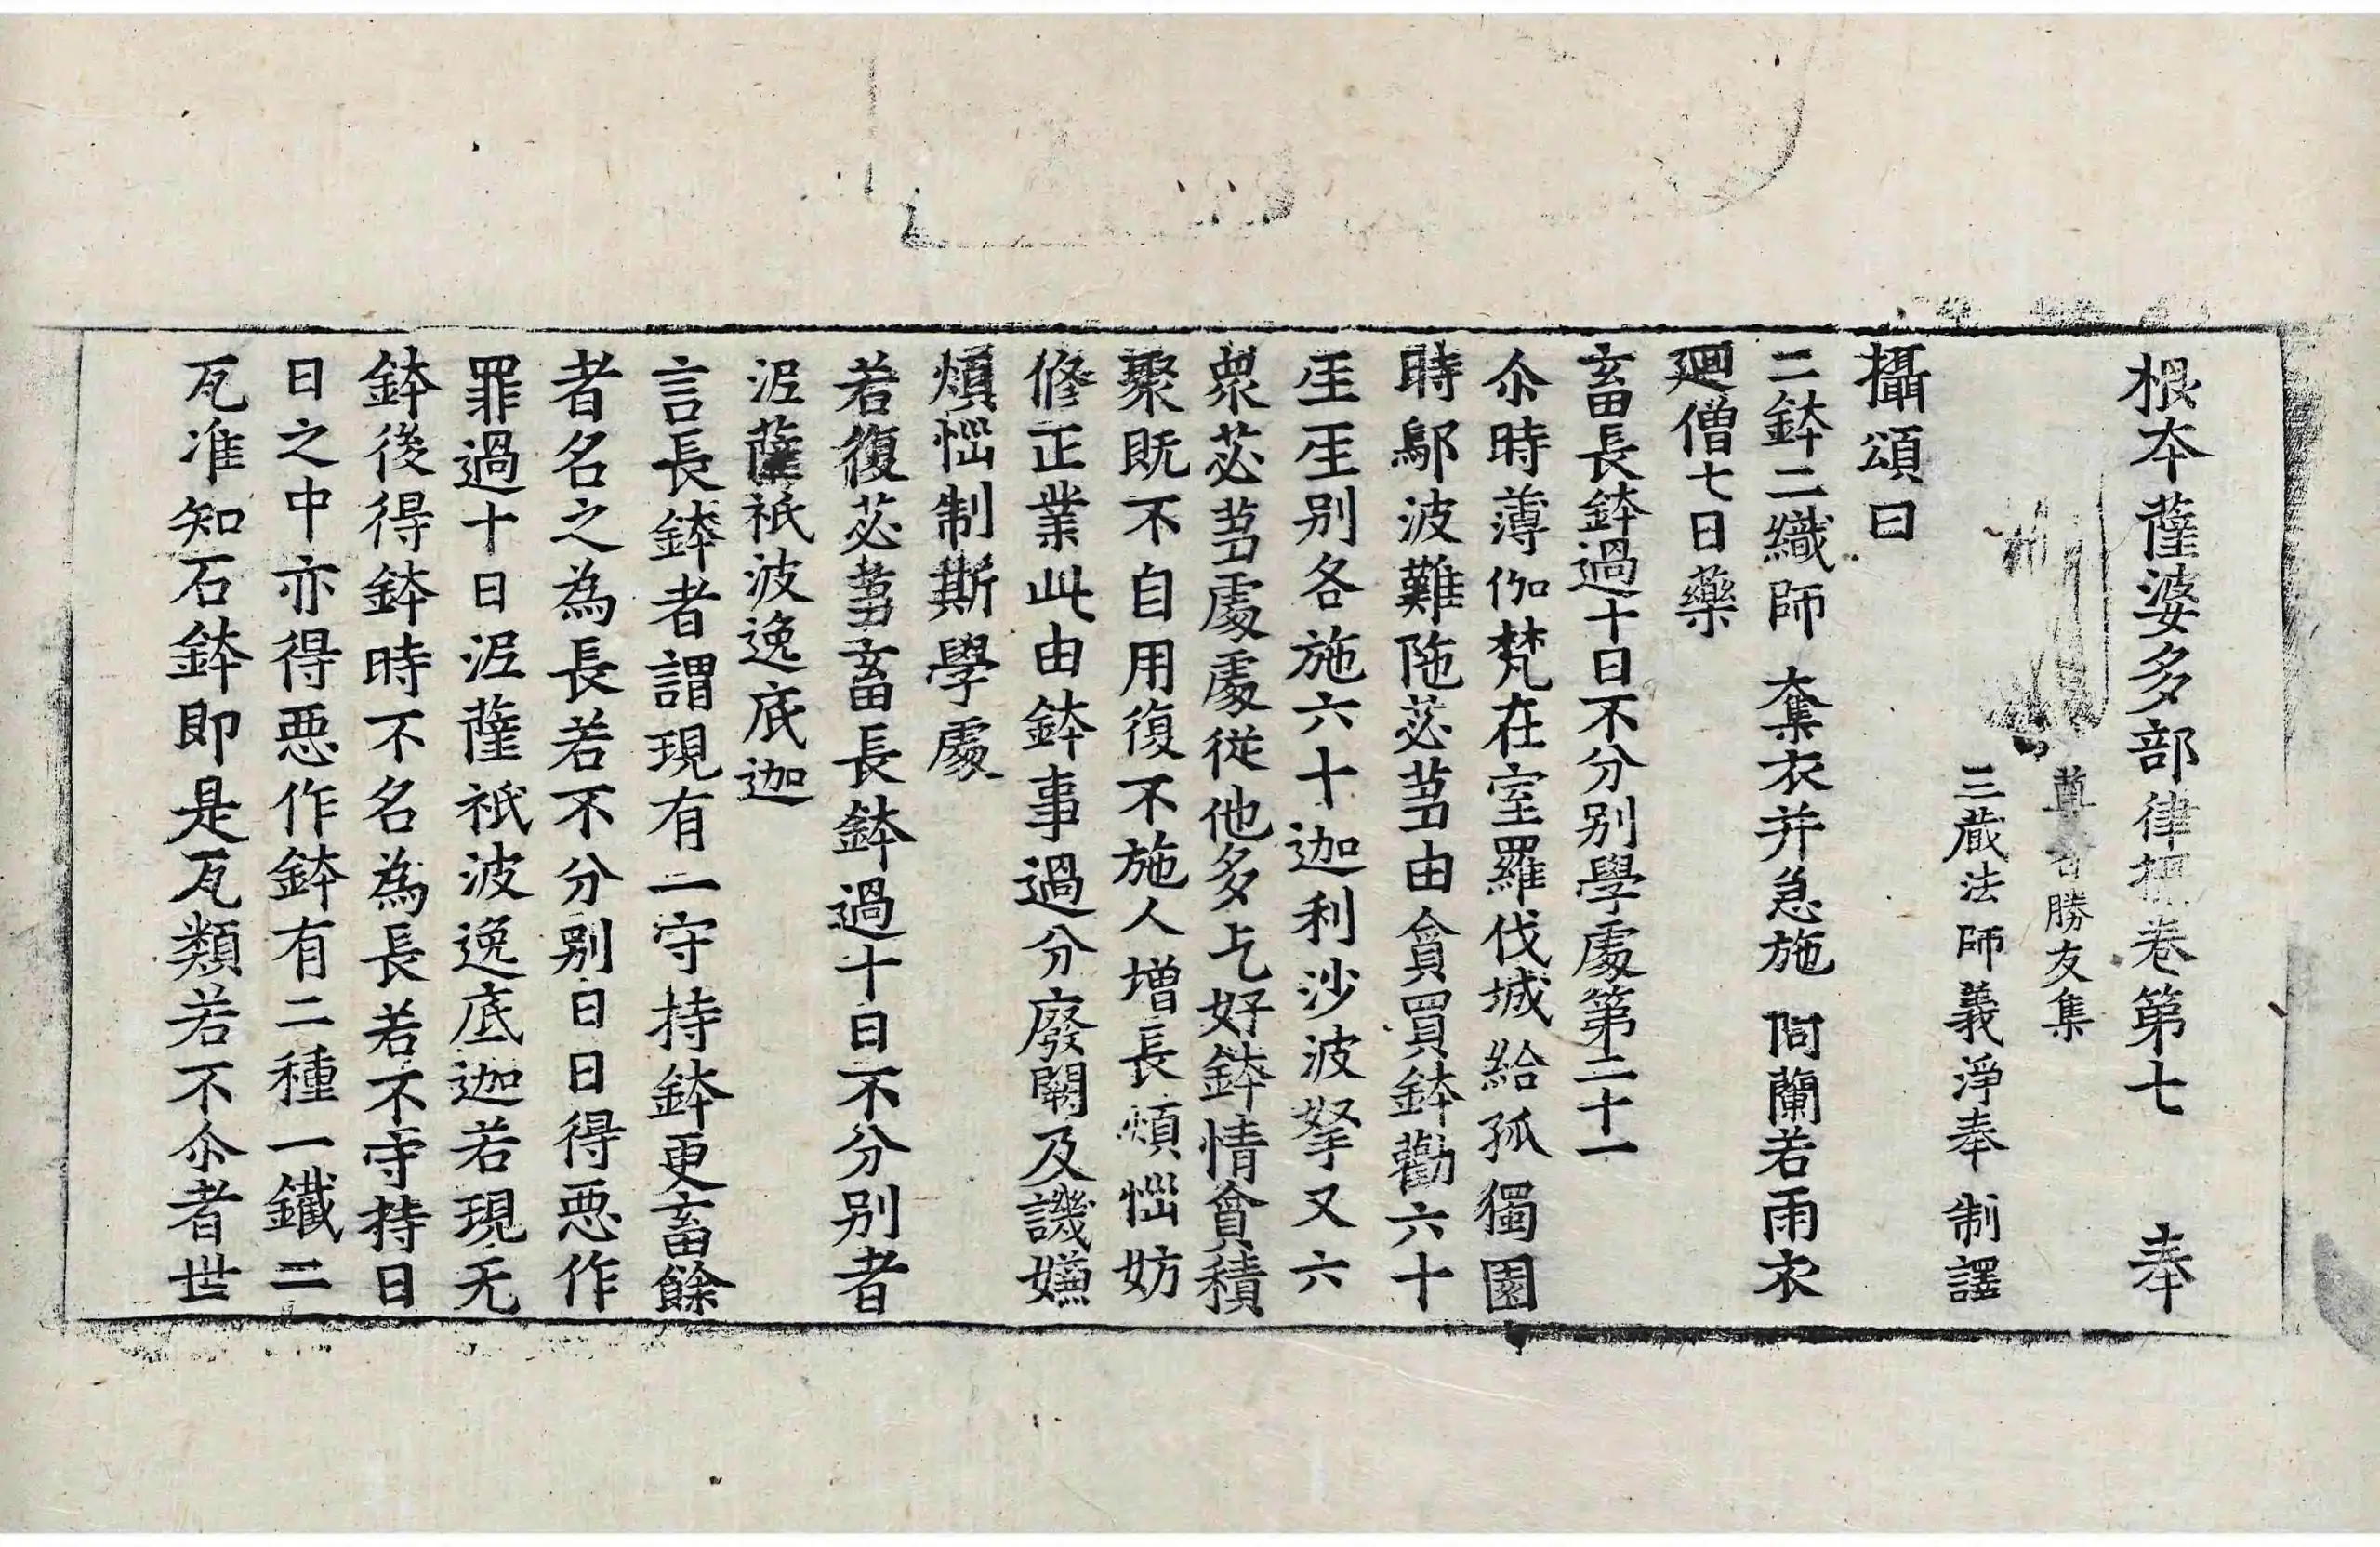 根本薩婆多部律攝卷第七 奉
尊者勝友集
三藏法師義淨奉 制譯
攝頌曰
二鉢二織師 奪衣并急施 阿蘭若雨衣
迴僧七日藥
畜長鉢過十日不分別學處第二十一
尒時薄伽梵在室羅伐城給孤獨園
時鄔波難陁苾芻由貪買鉢勸六十
𤯔𤯔別各施六十迦利沙波拏又六
衆苾芻處處從他多乞好鉢情貪積
聚既不自用復不施人增長煩惱妨
修正業此由鉢事過分廢闕及譏嫌
煩惱制斯學處
若復苾芻畜長鉢過十日不分別者
泥薩祇波逸底迦
言長鉢者謂現有一守持鉢更畜餘
者名之為長若不分別日日得惡作
罪過十日泥薩祇波逸底迦若現无
鉢後得鉢時不名為長若不守持日
日之中亦得惡作鉢有二種一鐵二
瓦准知石鉢即是瓦類若不尒者世